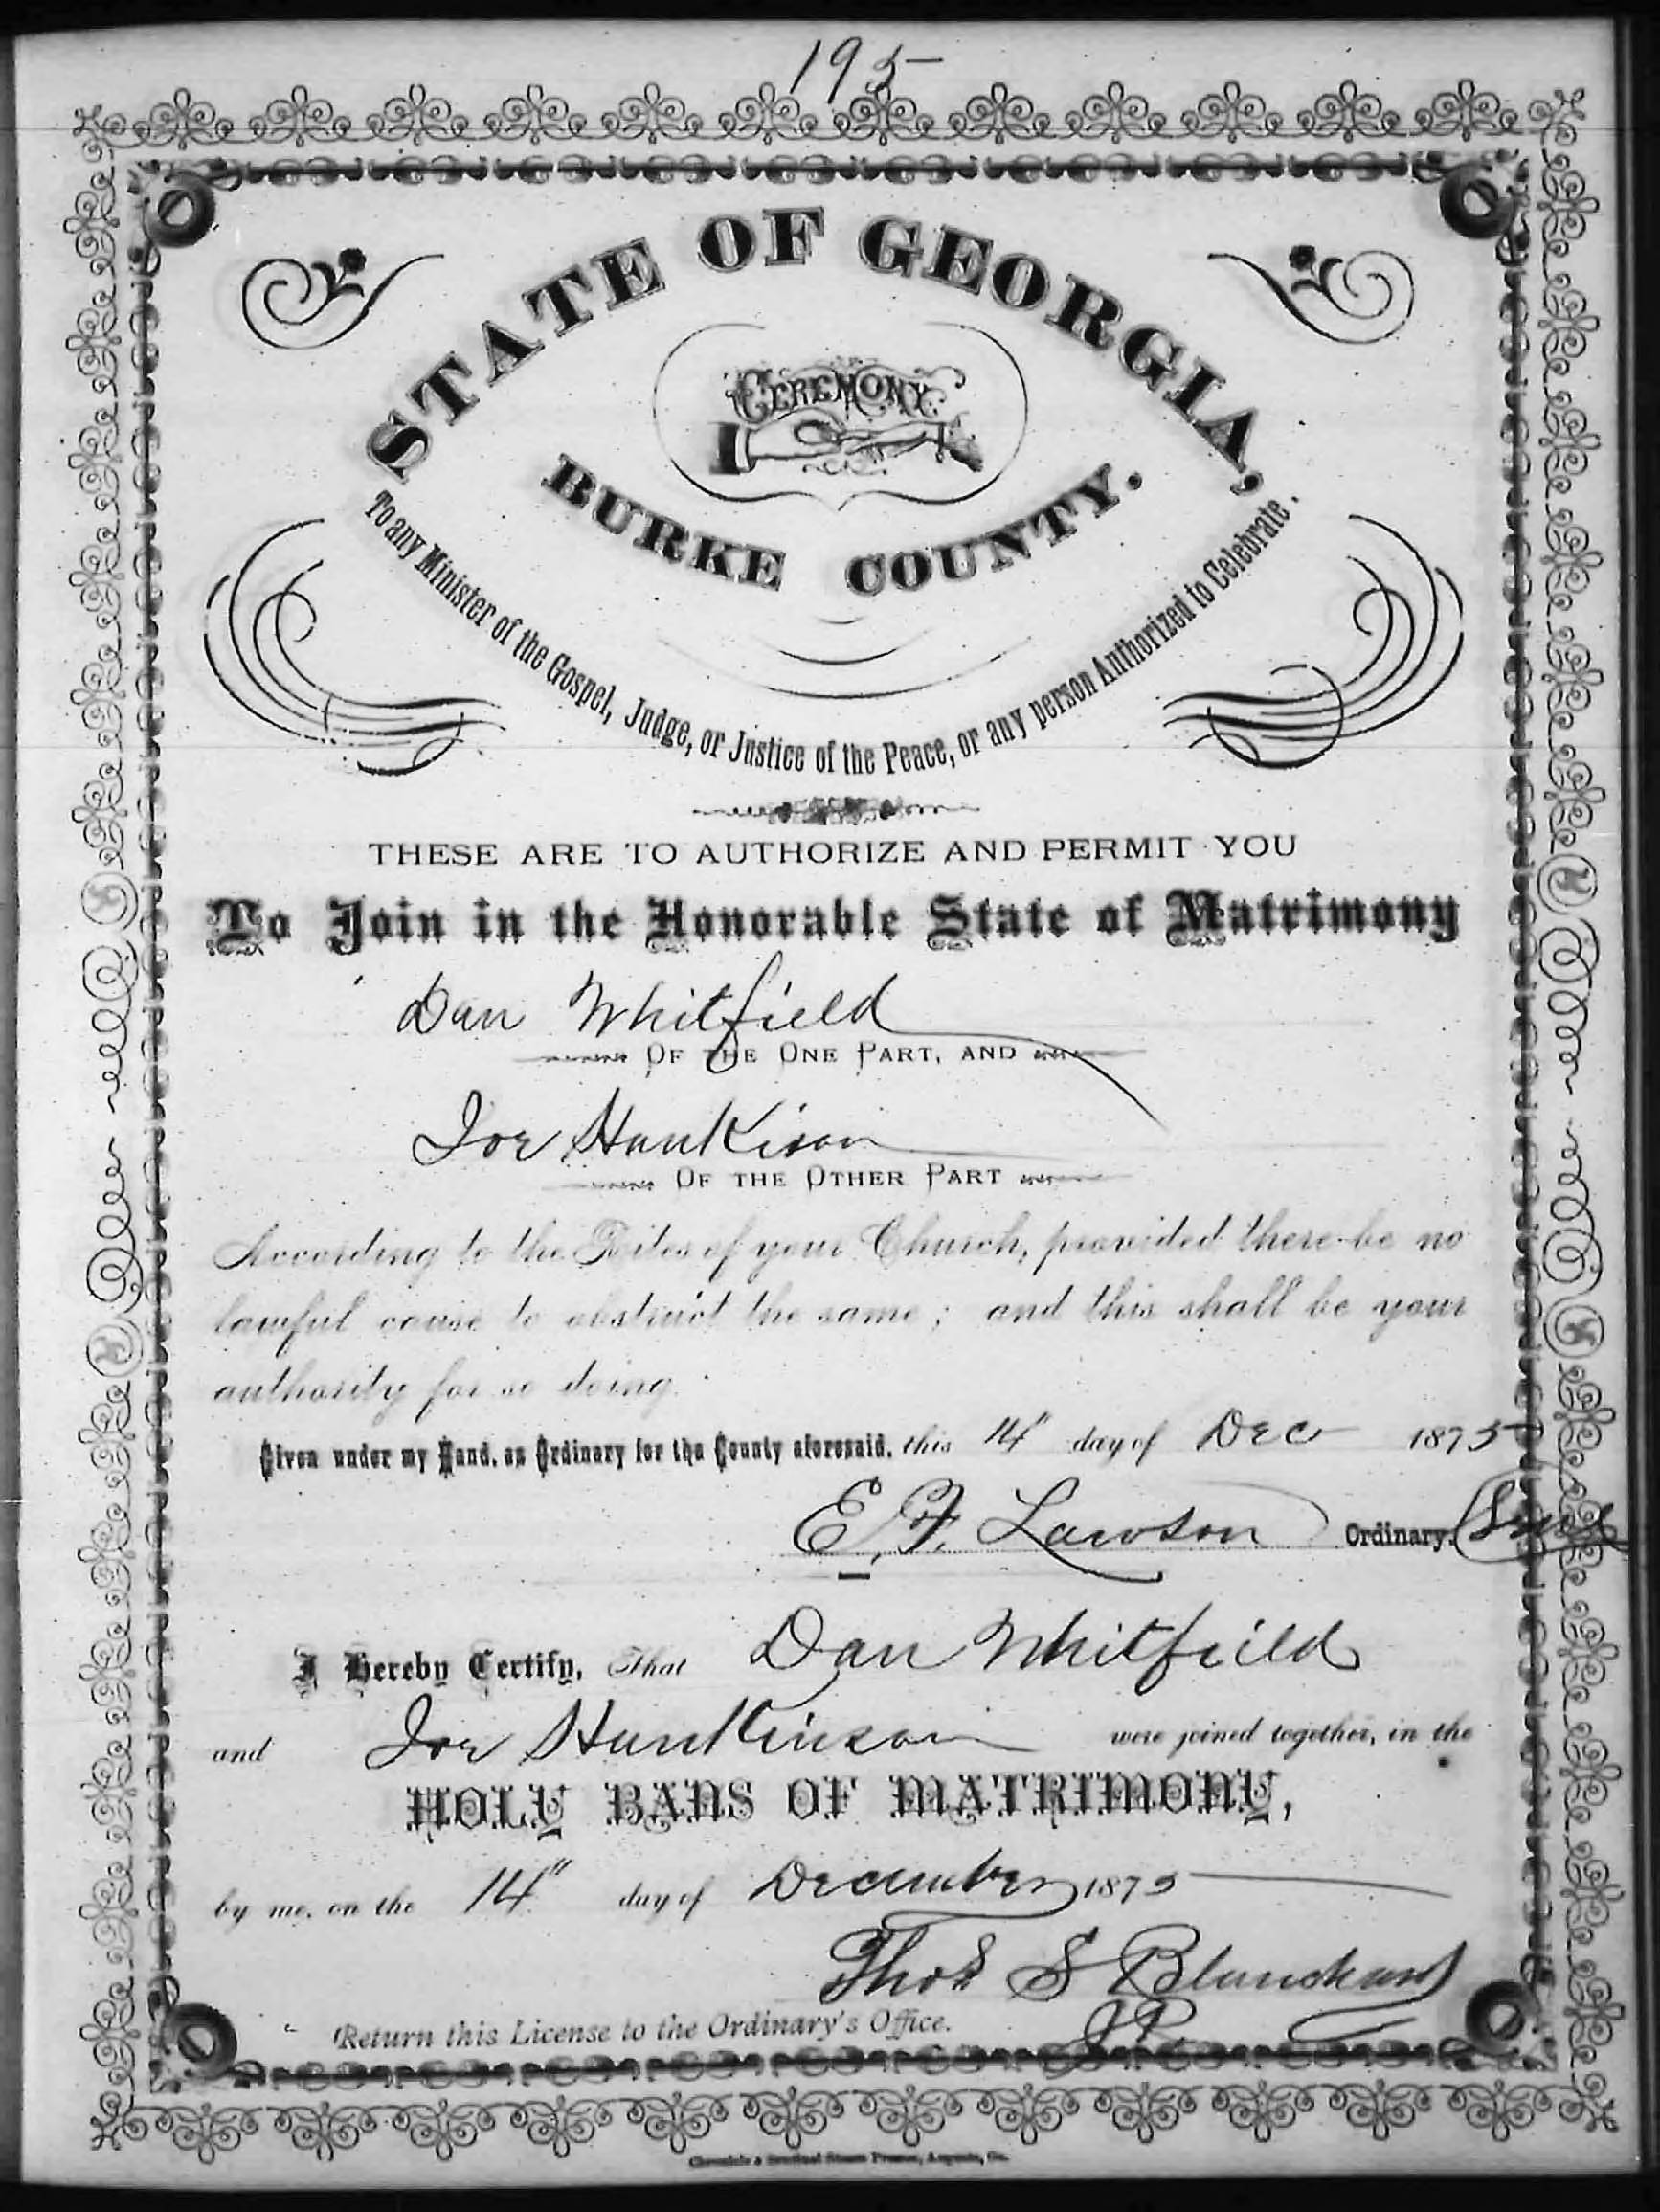 195
STATE OF GEORGIA,
CEREMONY
BURKE COUNTY.
To any Minister of the Gospel, Judge, or Justice of the Peace, or any person Authorized to Celebrate.
THESE ARE TO AUTHORIZE AND PERMIT YOU
To Join in the Honorable State of Matrimony
Dan Whitfield
OF THE ONE PART, AND
Joe Hankison
OF THE OTHER PART
According to the Rites of your Church, provided there be no
lawful cause to obstruct the same; and this shall be your
authority for so doing.
Given under my Hand, as Ordinary for the County aforesaid, this 14" day of Dec 1875
E. F. Lawson Ordinary.
I Hereby Certify, That Dan Whitfeild
and Joe Hankinson were joined together, in the
HOLY BANS OF MATRIMONY,
by me, on the 14" day of December 1875
Thos S Blanchard
J P.
Return this License to the Ordinary's Office.
Chronicle & Sentinel Steam Presses, Augusta, Ga.